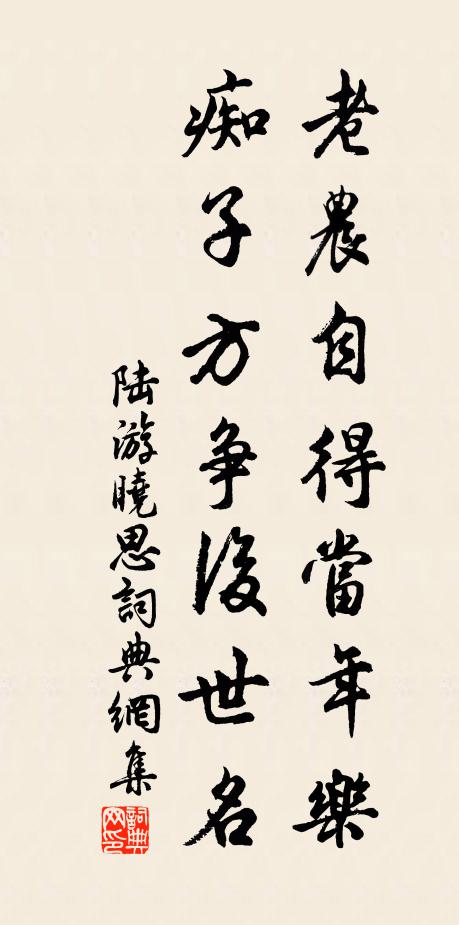 老農自得當年樂
痴子方爭後世名
陆游曉思詞典網集
詞典网印